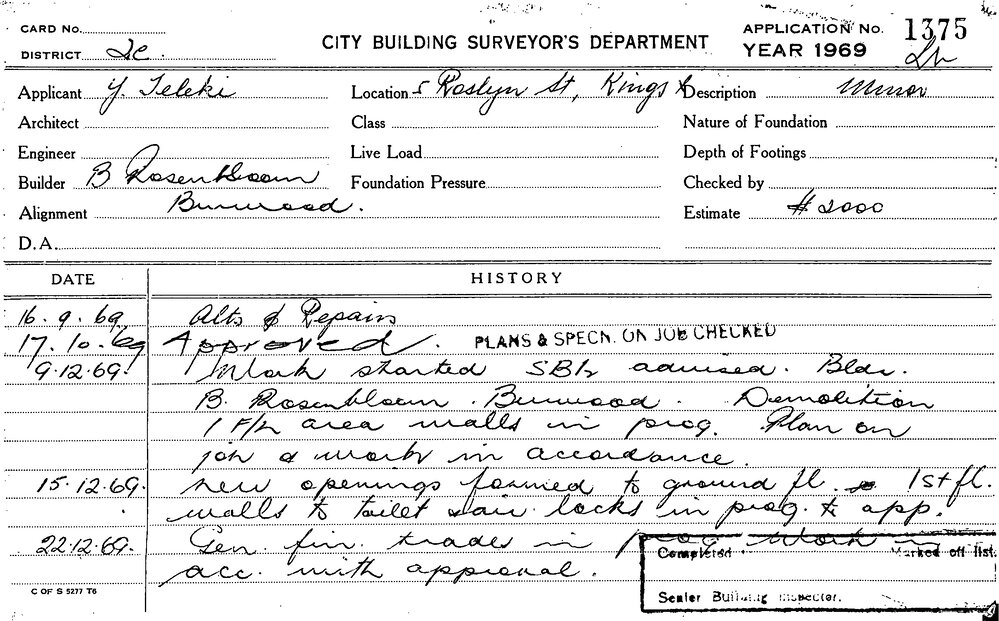 CARD No.
DISTRICT
CITY BUILDING SURVEYOR'S DEPARTMENT
APPLICATION No. 1375
YEAR 1969
Applicant Y. Teleki
Location 5 Roslyn St, Kings X
Description Minor
Architect
Class
Nature of Foundation
Engineer
Live Load
Depth of Footings
Builder B Rosenbloom
Foundation Pressure
Checked by
Alignment Burwood.
Estimate $2000
D.A.
DATE HISTORY
16.9.69 Alts & Repairs
17.10.69 Approved. PLANS & SPECN. ON JOB CHECKED
9.12.69. Work started advised. Bldr.
B. Rosenbloom. Burwood. Demolition
1 area walls in prog. Plan on
job & work in accordance.
15.12.69. New openings formed to ground fl. 1st fl.
walls to toilet & air locks in prog. to app.
22.12.69. Gen. fin. trades in prog work in
acc. with approval.
Completed Marked off list.
Senior Building Inspector.
C OF S 5277 T6